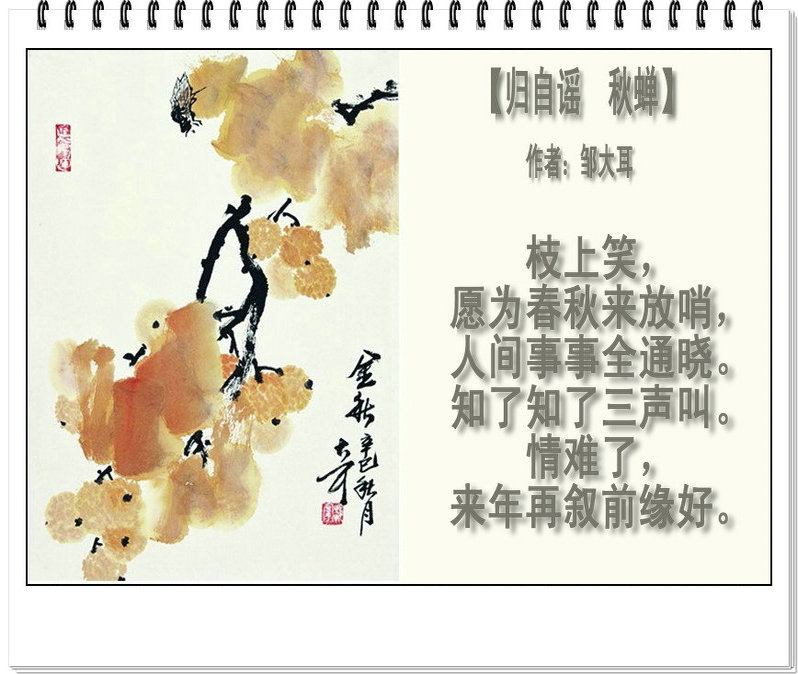 【归自谣　秋蝉】
作者：邹大耳
枝上笑，
愿为春秋来放哨，
人间事事全通晓。
知了知了三声叫。
情难了，
来年再叙前缘好。
金秋
辛巳秋月
大耳